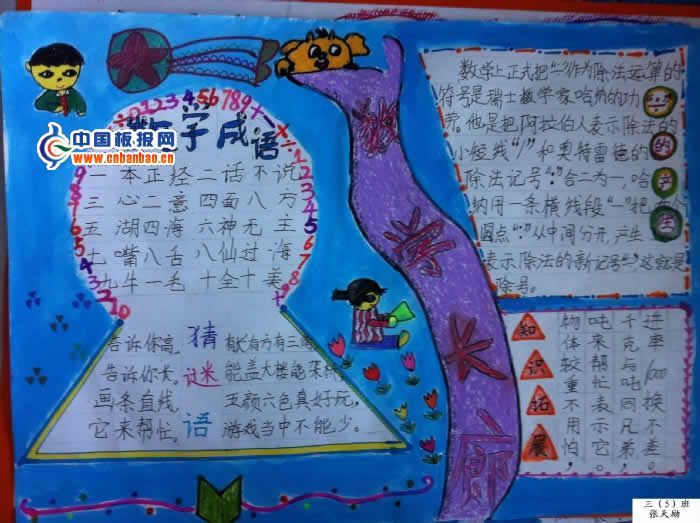 ÷0123456789+
数学成语
×÷123456789
中国板报网
www.cnbanbao.cn
一本正经 二话不说
三心二意 四面八方
五湖四海 六神无主
七嘴八舌 八仙过海
九牛一毛 十全十美
猜谜语
告诉你高,
告诉你长。
画条直线,
它来帮忙。
有长有方有三角
能盖大楼能架桥,
五颜六色真好玩,
游戏当中不能少。
数学长廊
"÷"的产生
数学上正式把"÷"作为除法运算的
符号是瑞士数学家哈纳的功
劳。他是把阿拉伯人表示除法的
小短线"/"和奥特雷德的
除法记号":"合二为一,哈
纳用一条横线段"—"把两个
圆点":"从中间分开,产生
表示除法的新记号"÷",这就是
除号。
知识拓展
物体较重不用怕,
吨来帮忙表示它。
千克与吨同凡弟,
进率1000换不差。
三(5)班
张天励